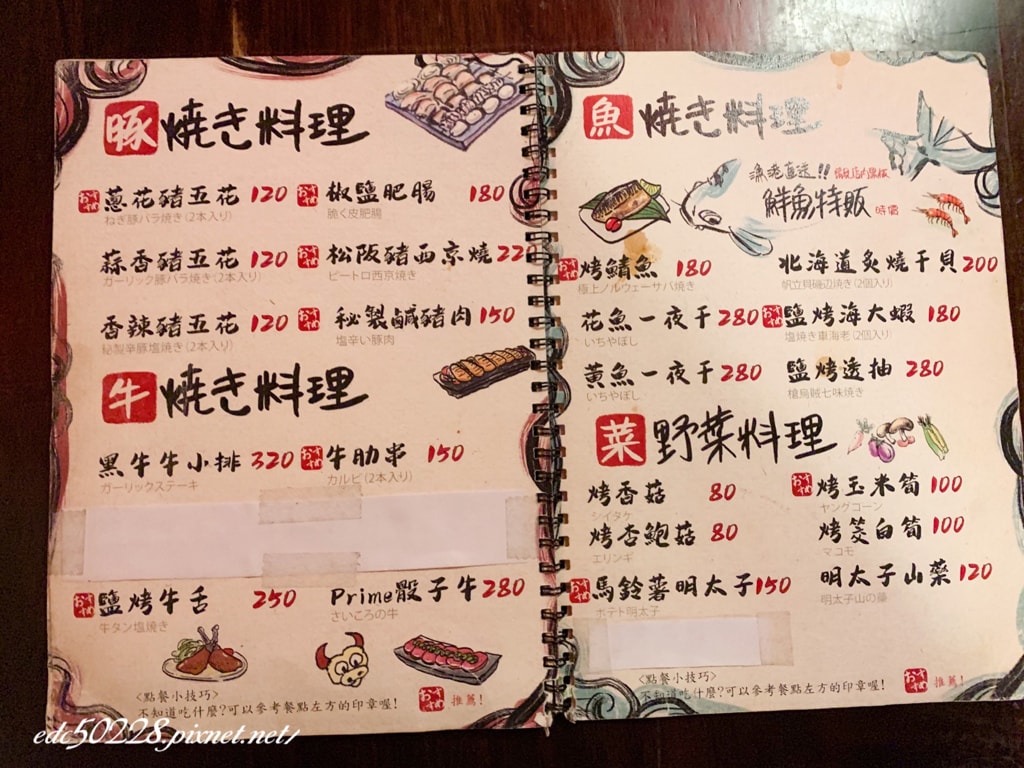 豚 焼き料理
おすすめ 蔥花豬五花 120
ねぎ豚バラ焼き(2本入り)
おすすめ 椒鹽肥腸 180
脆く皮肥腸
蒜香豬五花 120
ガーリック豚バラ焼き(2本入り)
おすすめ 松阪豬西京燒 220
ピートロ西京焼き
香辣豬五花 120
秘製辛豚塩焼き(2本入り)
おすすめ 秘製鹹豬肉 150
塩辛い豚肉
牛 焼き料理
黑牛牛小排 320
ガーリックステーキ
おすすめ 牛肋串 150
カルビ(2本入り)
おすすめ 鹽烤牛舌 250
牛タン塩焼き
Prime骰子牛 280
さいころの牛
<點餐小技巧>
不知道吃什麼?可以參考餐點左方的印章喔!
おすすめ 推薦!
魚 焼き料理
漁港直送!!
鮮魚特販 時價
おすすめ 烤鯖魚 180
極上ノルウェーサバ焼き
北海道炙燒干貝 200
帆立貝磯辺焼き(2個入り)
花魚一夜干 280
いちやぼし
おすすめ 鹽烤海大蝦 180
塩焼き車海老(2個入り)
黃魚一夜干 280
いちやぼし
鹽烤透抽 280
槍烏賊七味焼き
菜 野菜料理
烤香菇 80
シイタケ
おすすめ 烤玉米筍 100
ヤングコーン
烤杏鮑菇 80
エリンギ
烤茭白筍 100
マコモ
おすすめ 馬鈴薯明太子 150
ポテト明太子
明太子山藥 120
明太子山の藥
<點餐小技巧>
不知道吃什麼?可以參考餐點左方的印章喔!
おすすめ 推薦!
edc50228.pixnet.net/